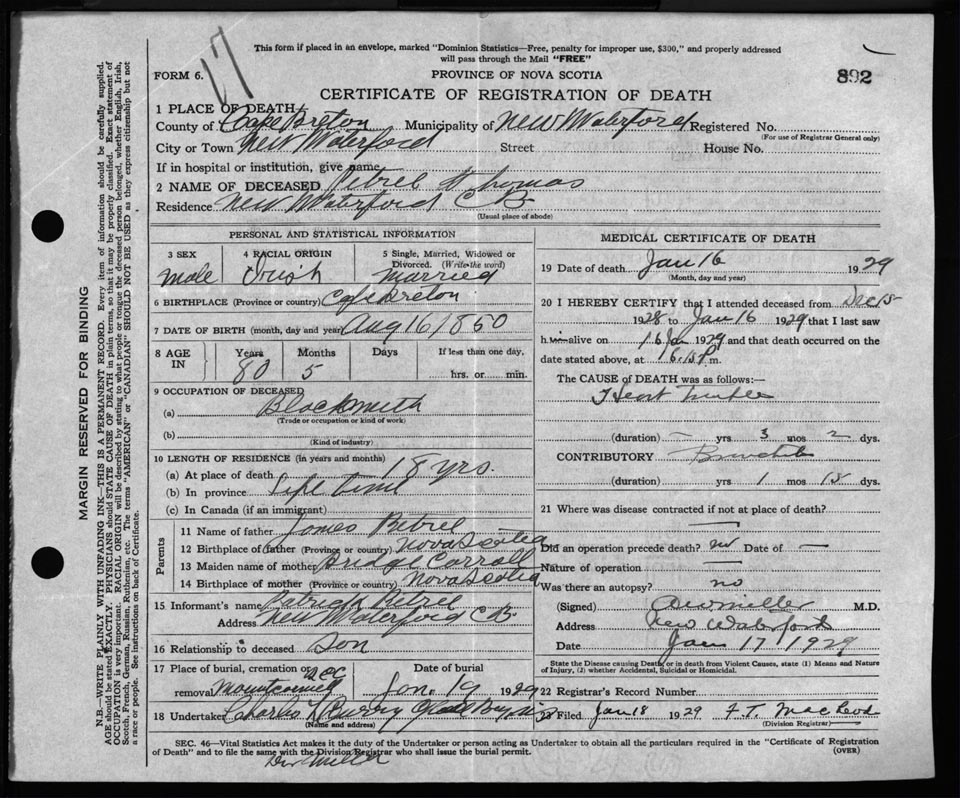 17
This form if placed in an envelope, marked "Dominion Statistics—Free, penalty for improper use, $300," and properly addressed
will pass through the Mail "FREE"
FORM 6. PROVINCE OF NOVA SCOTIA 892
CERTIFICATE OF REGISTRATION OF DEATH
1 PLACE OF DEATH
County of Cape Breton Municipality of New Waterford Registered No.
(For use of Registrar General only)
City or Town New Waterford Street House No.
If in hospital or institution, give name
2 NAME OF DECEASED Petrel Thomas
Residence New Waterford C B
(Usual place of abode)
PERSONAL AND STATISTICAL INFORMATION
3 SEX 4 RACIAL ORIGIN 5 Single, Married, Widowed or
Divorced. (Write the word)
Male Irish Married
6 BIRTHPLACE (Province or country) Cape Breton
7 DATE OF BIRTH (month, day and year) Aug 16 1850
8 AGE IN Years Months Days If less than one day,
80 5 hrs. or min.
9 OCCUPATION OF DECEASED
(a) Blacksmith
(Trade or occupation or kind of work)
(b)
(Kind of industry)
10 LENGTH OF RESIDENCE (in years and months)
(a) At place of death 18 yrs.
(b) In province Life time
(c) In Canada (if an immigrant)
Parents
11 Name of father James Petrel
12 Birthplace of father (Province or country) Nova Scotia
13 Maiden name of mother Bridget Carroll
14 Birthplace of mother (Province or country) Nova Scotia
15 Informant's name Patrick Petrel
Address New Waterford C B
16 Relationship to deceased Son
17 Place of burial, cremation or Date of burial
removal Jan 19 1929
18 Undertaker Charles
(Name and address)
MEDICAL CERTIFICATE OF DEATH
19 Date of death Jan 16 1929
(Month, day and year)
20 I HEREBY CERTIFY that I attended deceased from Dec 15
1928 to Jan 16 1929 that I last saw
him alive on 16 Jan 1929 and that death occurred on the
date stated above, at m.
The CAUSE of DEATH was as follows:—
Heart
(duration) — yrs 3 mos 2 dys.
CONTRIBUTORY
(duration) yrs 1 mos 15 dys.
21 Where was disease contracted if not at place of death?
Did an operation precede death? no Date of —
Nature of operation —
Was there an autopsy? no
(Signed) Miller M.D.
Address New Waterford
Date Jan 17 1929
State the Disease causing Death, or in death from Violent Causes, state (1) Means and Nature
of Injury, (2) whether Accidental, Suicidal or Homicidal.
22 Registrar's Record Number
23 Filed Jan 18 1929 F. T. MacLeod
(Division Registrar)
SEC. 46—Vital Statistics Act makes it the duty of the Undertaker or person acting as Undertaker to obtain all the particulars required in the "Certificate of Registration
of Death" and to file the same with the Division Registrar who shall issue the burial permit. (OVER)
Miller
MARGIN RESERVED FOR BINDING
N.B.—WRITE PLAINLY WITH UNFADING INK—THIS IS A PERMANENT RECORD. Every item of information should be carefully supplied.
AGE should be stated EXACTLY. PHYSICIANS should STATE CAUSE OF DEATH in plain terms, so that it may be properly classified. Exact statement of
OCCUPATION is very important. RACIAL ORIGIN will be described by stating to what people or tongue the deceased person belonged, whether English, Irish,
Scotch, French, German, Russian, Ruthenian, etc. The terms "AMERICAN" or "CANADIAN" SHOULD NOT BE USED as they express citizenship but not
a race or people. See instructions on back of Certificate.